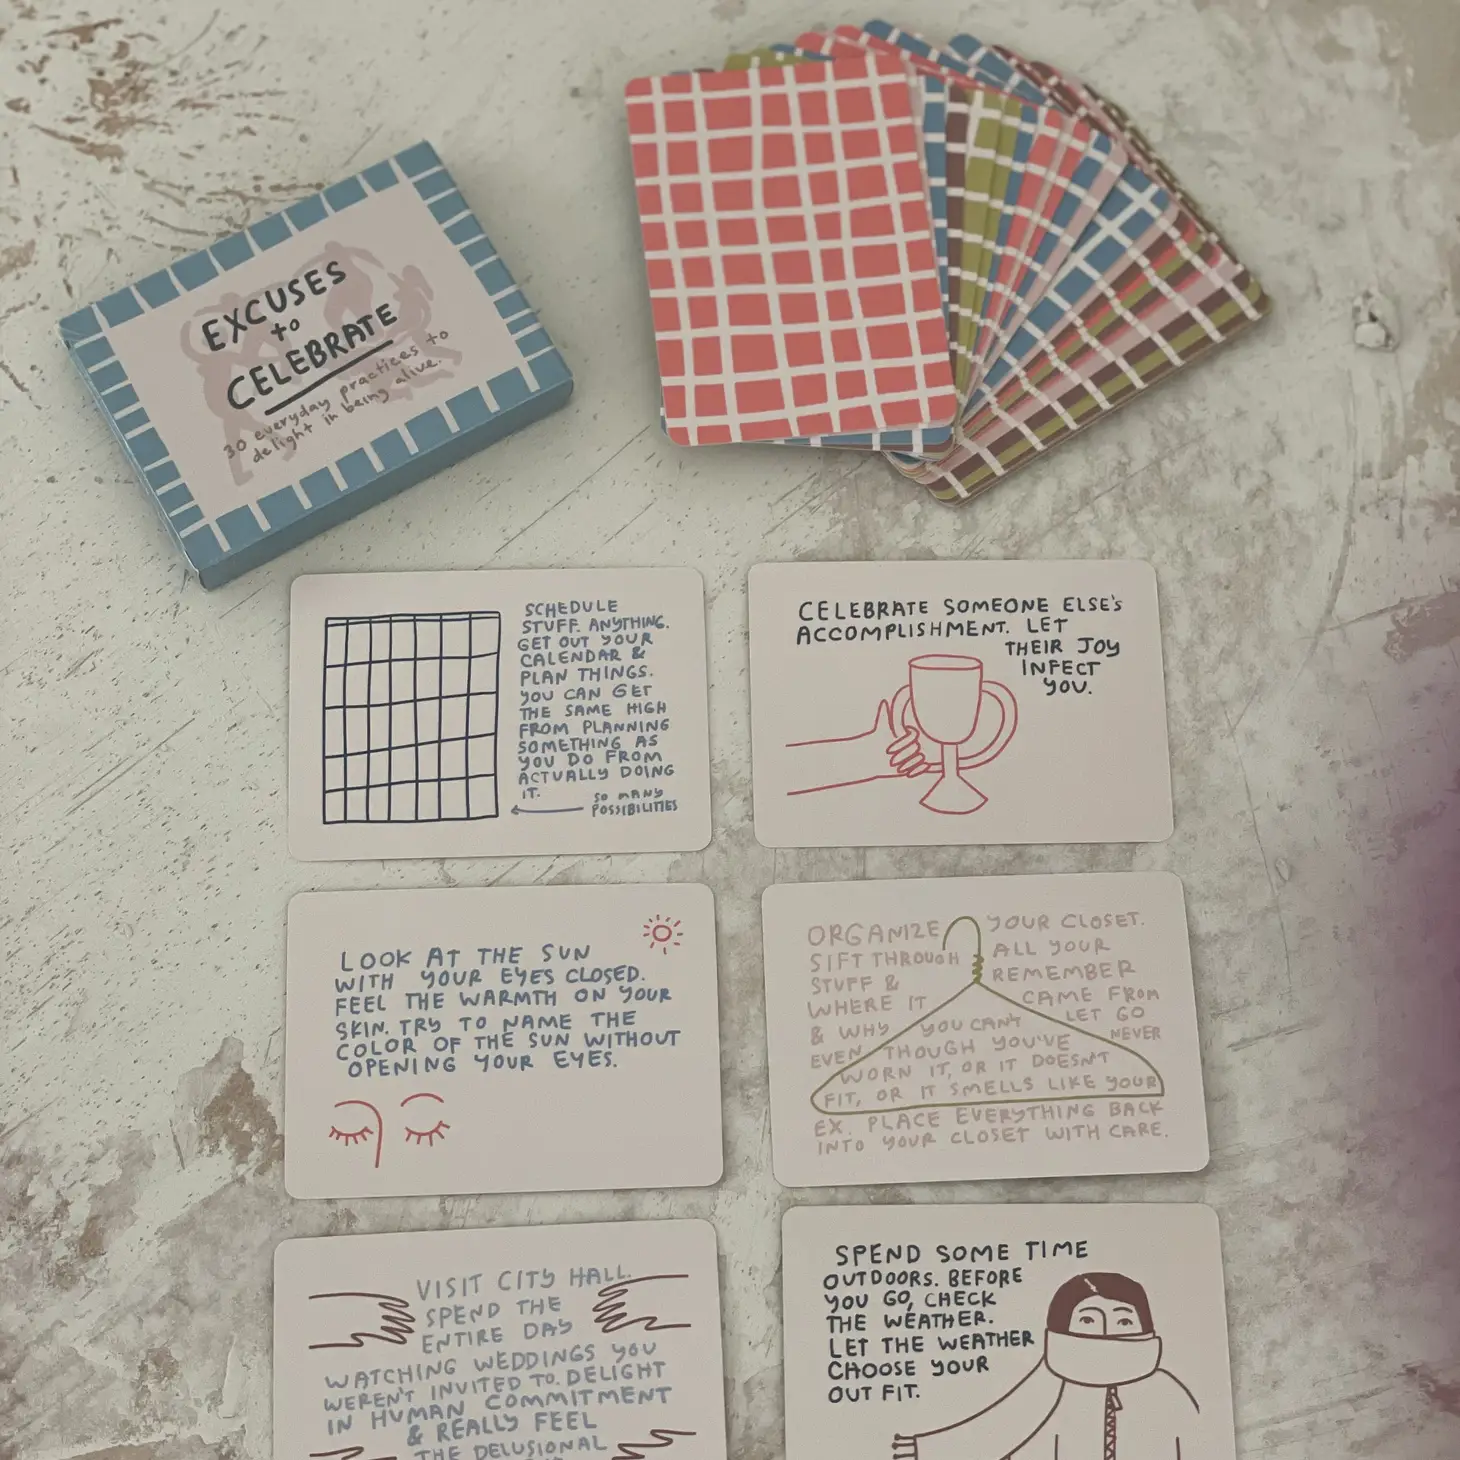 EXCUSES
to
CELEBRATE
30 everyday practices to
delight in being alive.
SCHEDULE
STUFF. ANYTHING.
GET OUT YOUR
CALENDAR &
PLAN THINGS.
YOU CAN GET
THE SAME HIGH
FROM PLANNING
SOMETHING AS
YOU DO FROM
ACTUALLY DOING
IT.
SO MANY
POSSIBILITIES
CELEBRATE SOMEONE ELSE'S
ACCOMPLISHMENT. LET
THEIR JOY
INFECT
YOU.
LOOK AT THE SUN
WITH YOUR EYES CLOSED.
FEEL THE WARMTH ON YOUR
SKIN. TRY TO NAME THE
COLOR OF THE SUN WITHOUT
OPENING YOUR EYES.
ORGANIZE YOUR CLOSET.
SIFT THROUGH ALL YOUR
STUFF & REMEMBER
WHERE IT CAME FROM
& WHY YOU CAN'T LET GO
EVEN THOUGH YOU'VE NEVER
WORN IT, OR IT DOESN'T
FIT, OR IT SMELLS LIKE YOUR
EX. PLACE EVERYTHING BACK
INTO YOUR CLOSET WITH CARE.
VISIT CITY HALL.
SPEND THE
ENTIRE DAY
WATCHING WEDDINGS YOU
WEREN'T INVITED TO. DELIGHT
IN HUMAN COMMITMENT
& REALLY FEEL
THE DELUSIONAL
SPEND SOME TIME
OUTDOORS. BEFORE
YOU GO, CHECK
THE WEATHER.
LET THE WEATHER
CHOOSE YOUR
OUT FIT.